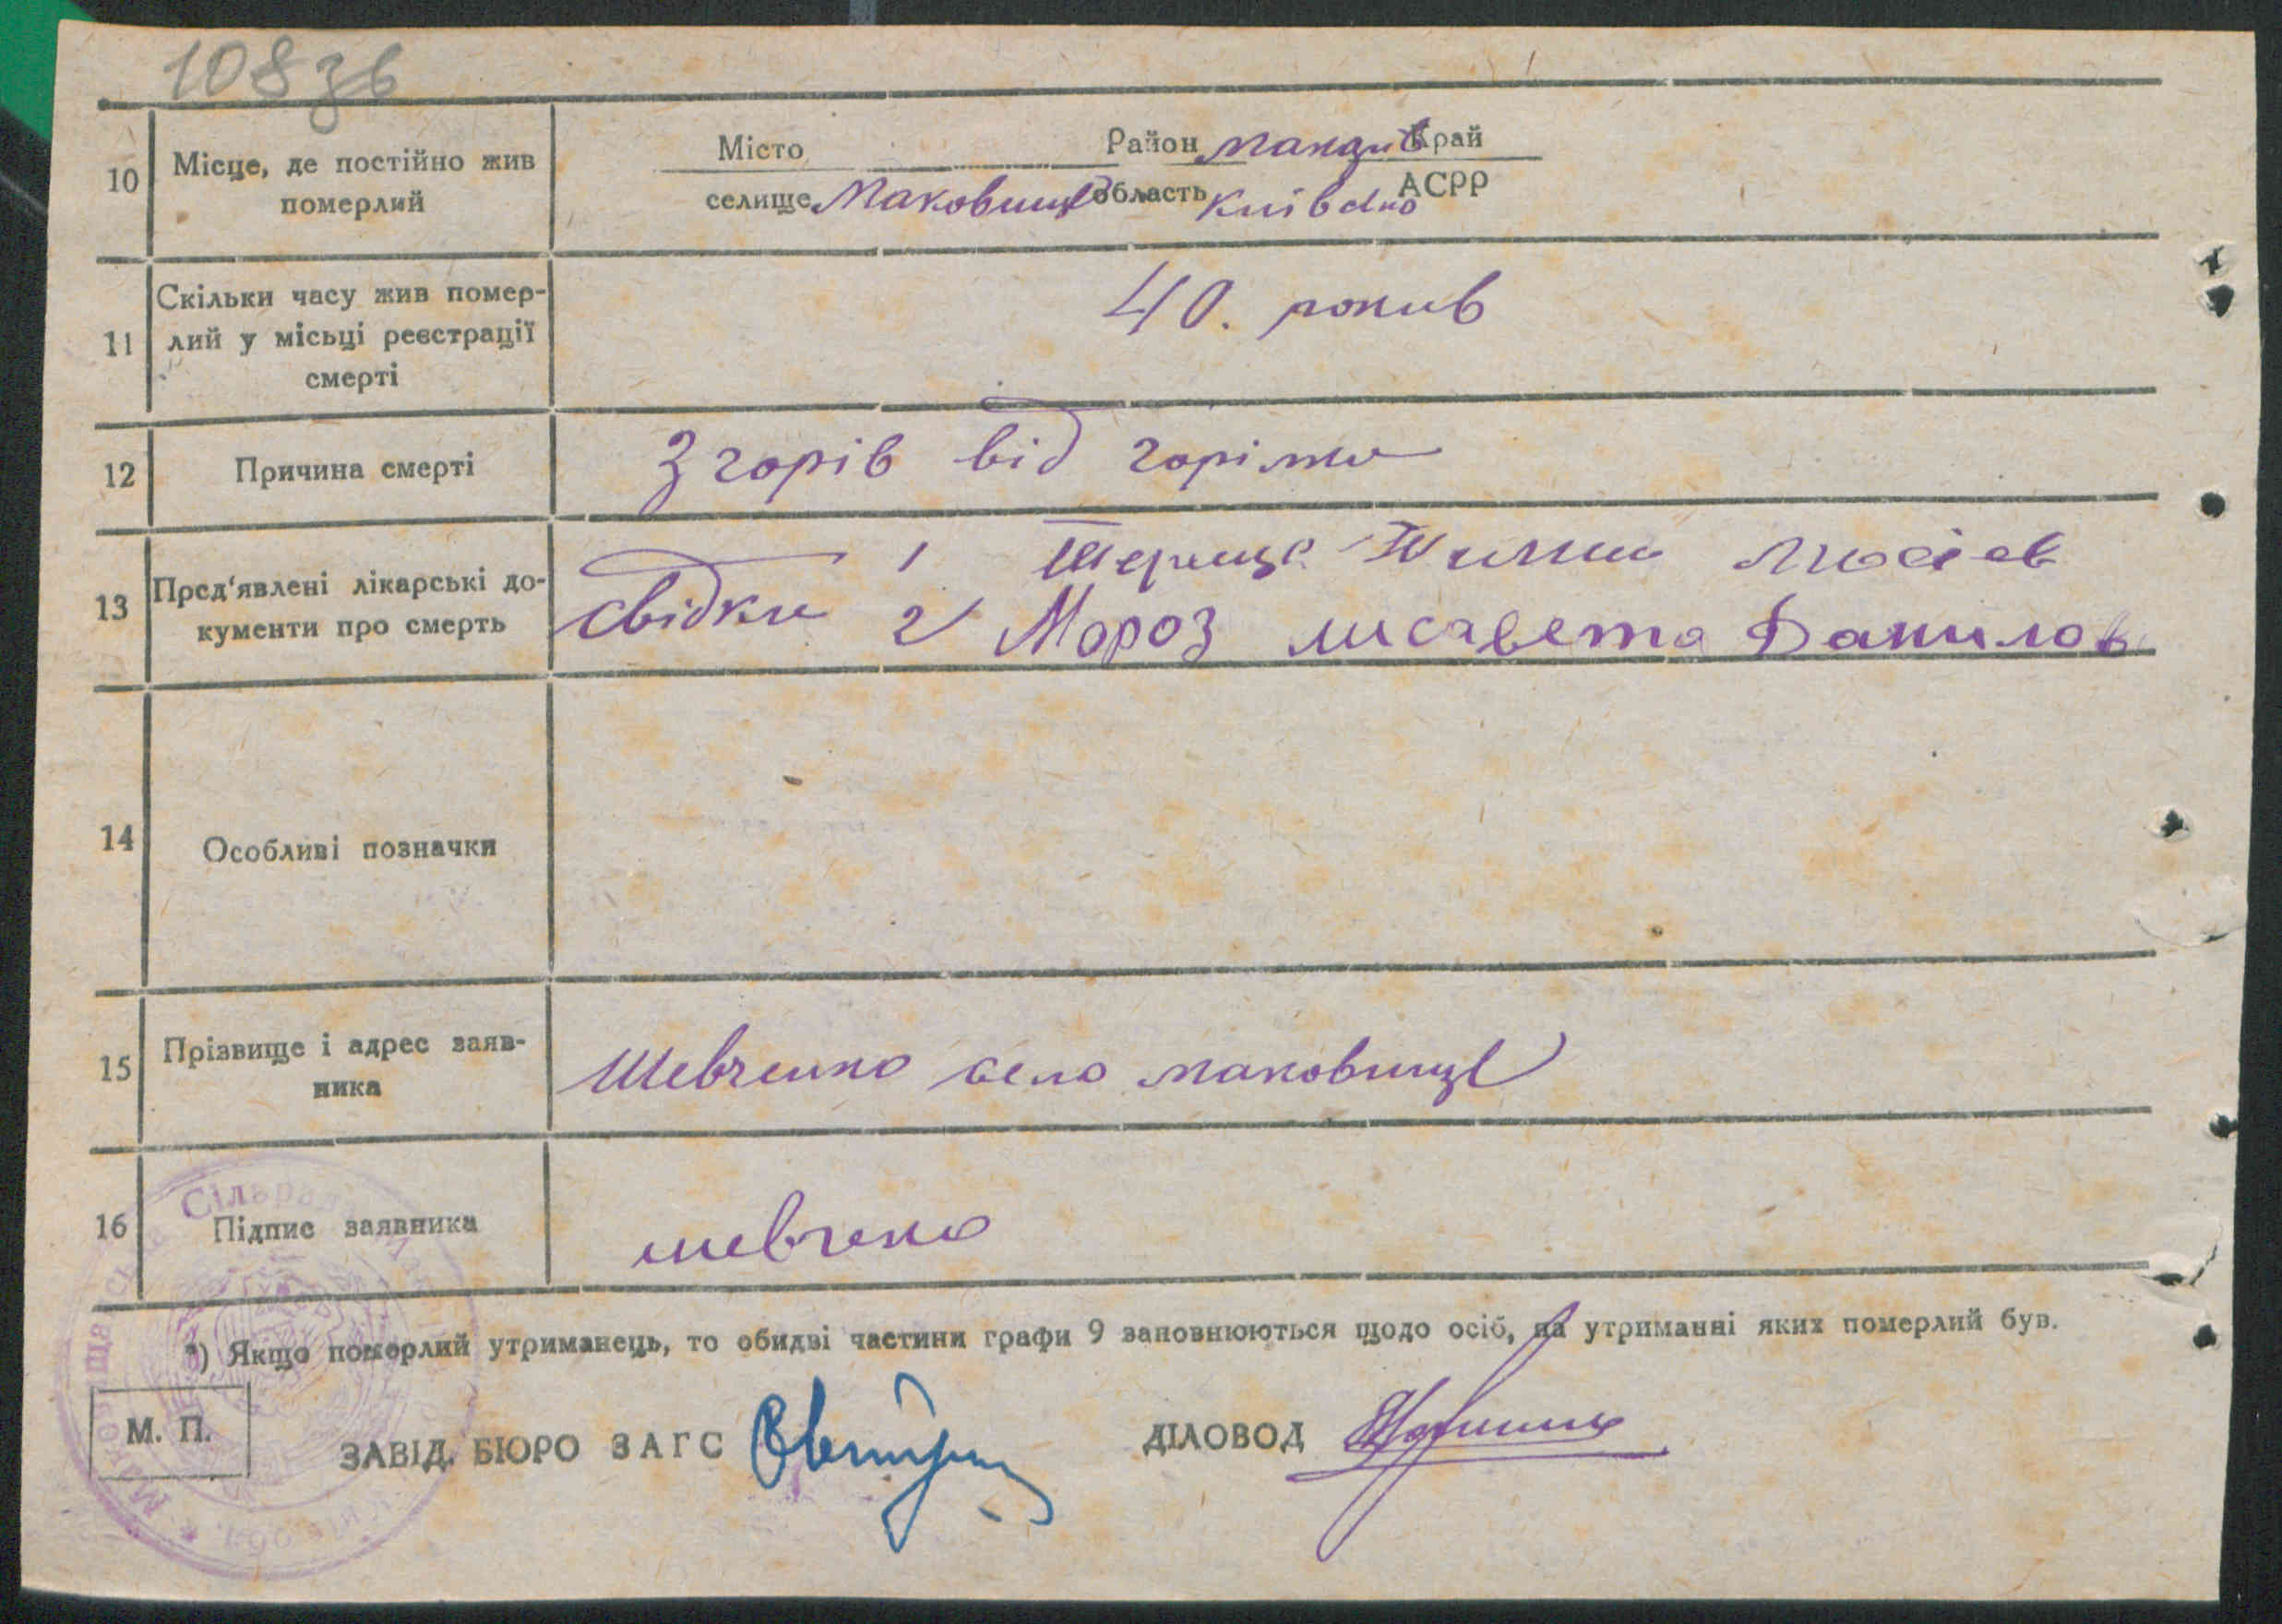 108 зв
10 Місце, де постійно жив померлий
Місто Район Край
селище Маковище область Київсько АСРР
11 Скільки часу жив померлий у місьці реєстрації смерті
40. рокив
12 Причина смерті
Згорів від горілки
13 Пред'явлені лікарські документи про смерть
свідки 1 Мосіев
2 Мороз лисавета Данилов
14 Особливі позначки
15 Прізвище і адрес заявника
Шевченко село маковище
16 Підпис заявника
шевченко
*) Якщо померлий утриманець, то обидві частини графи 9 заповнюються щодо осіб, на утриманні яких померлий був.
М. П.
ЗАВІД. БЮРО ЗАГС
ДІЛОВОД